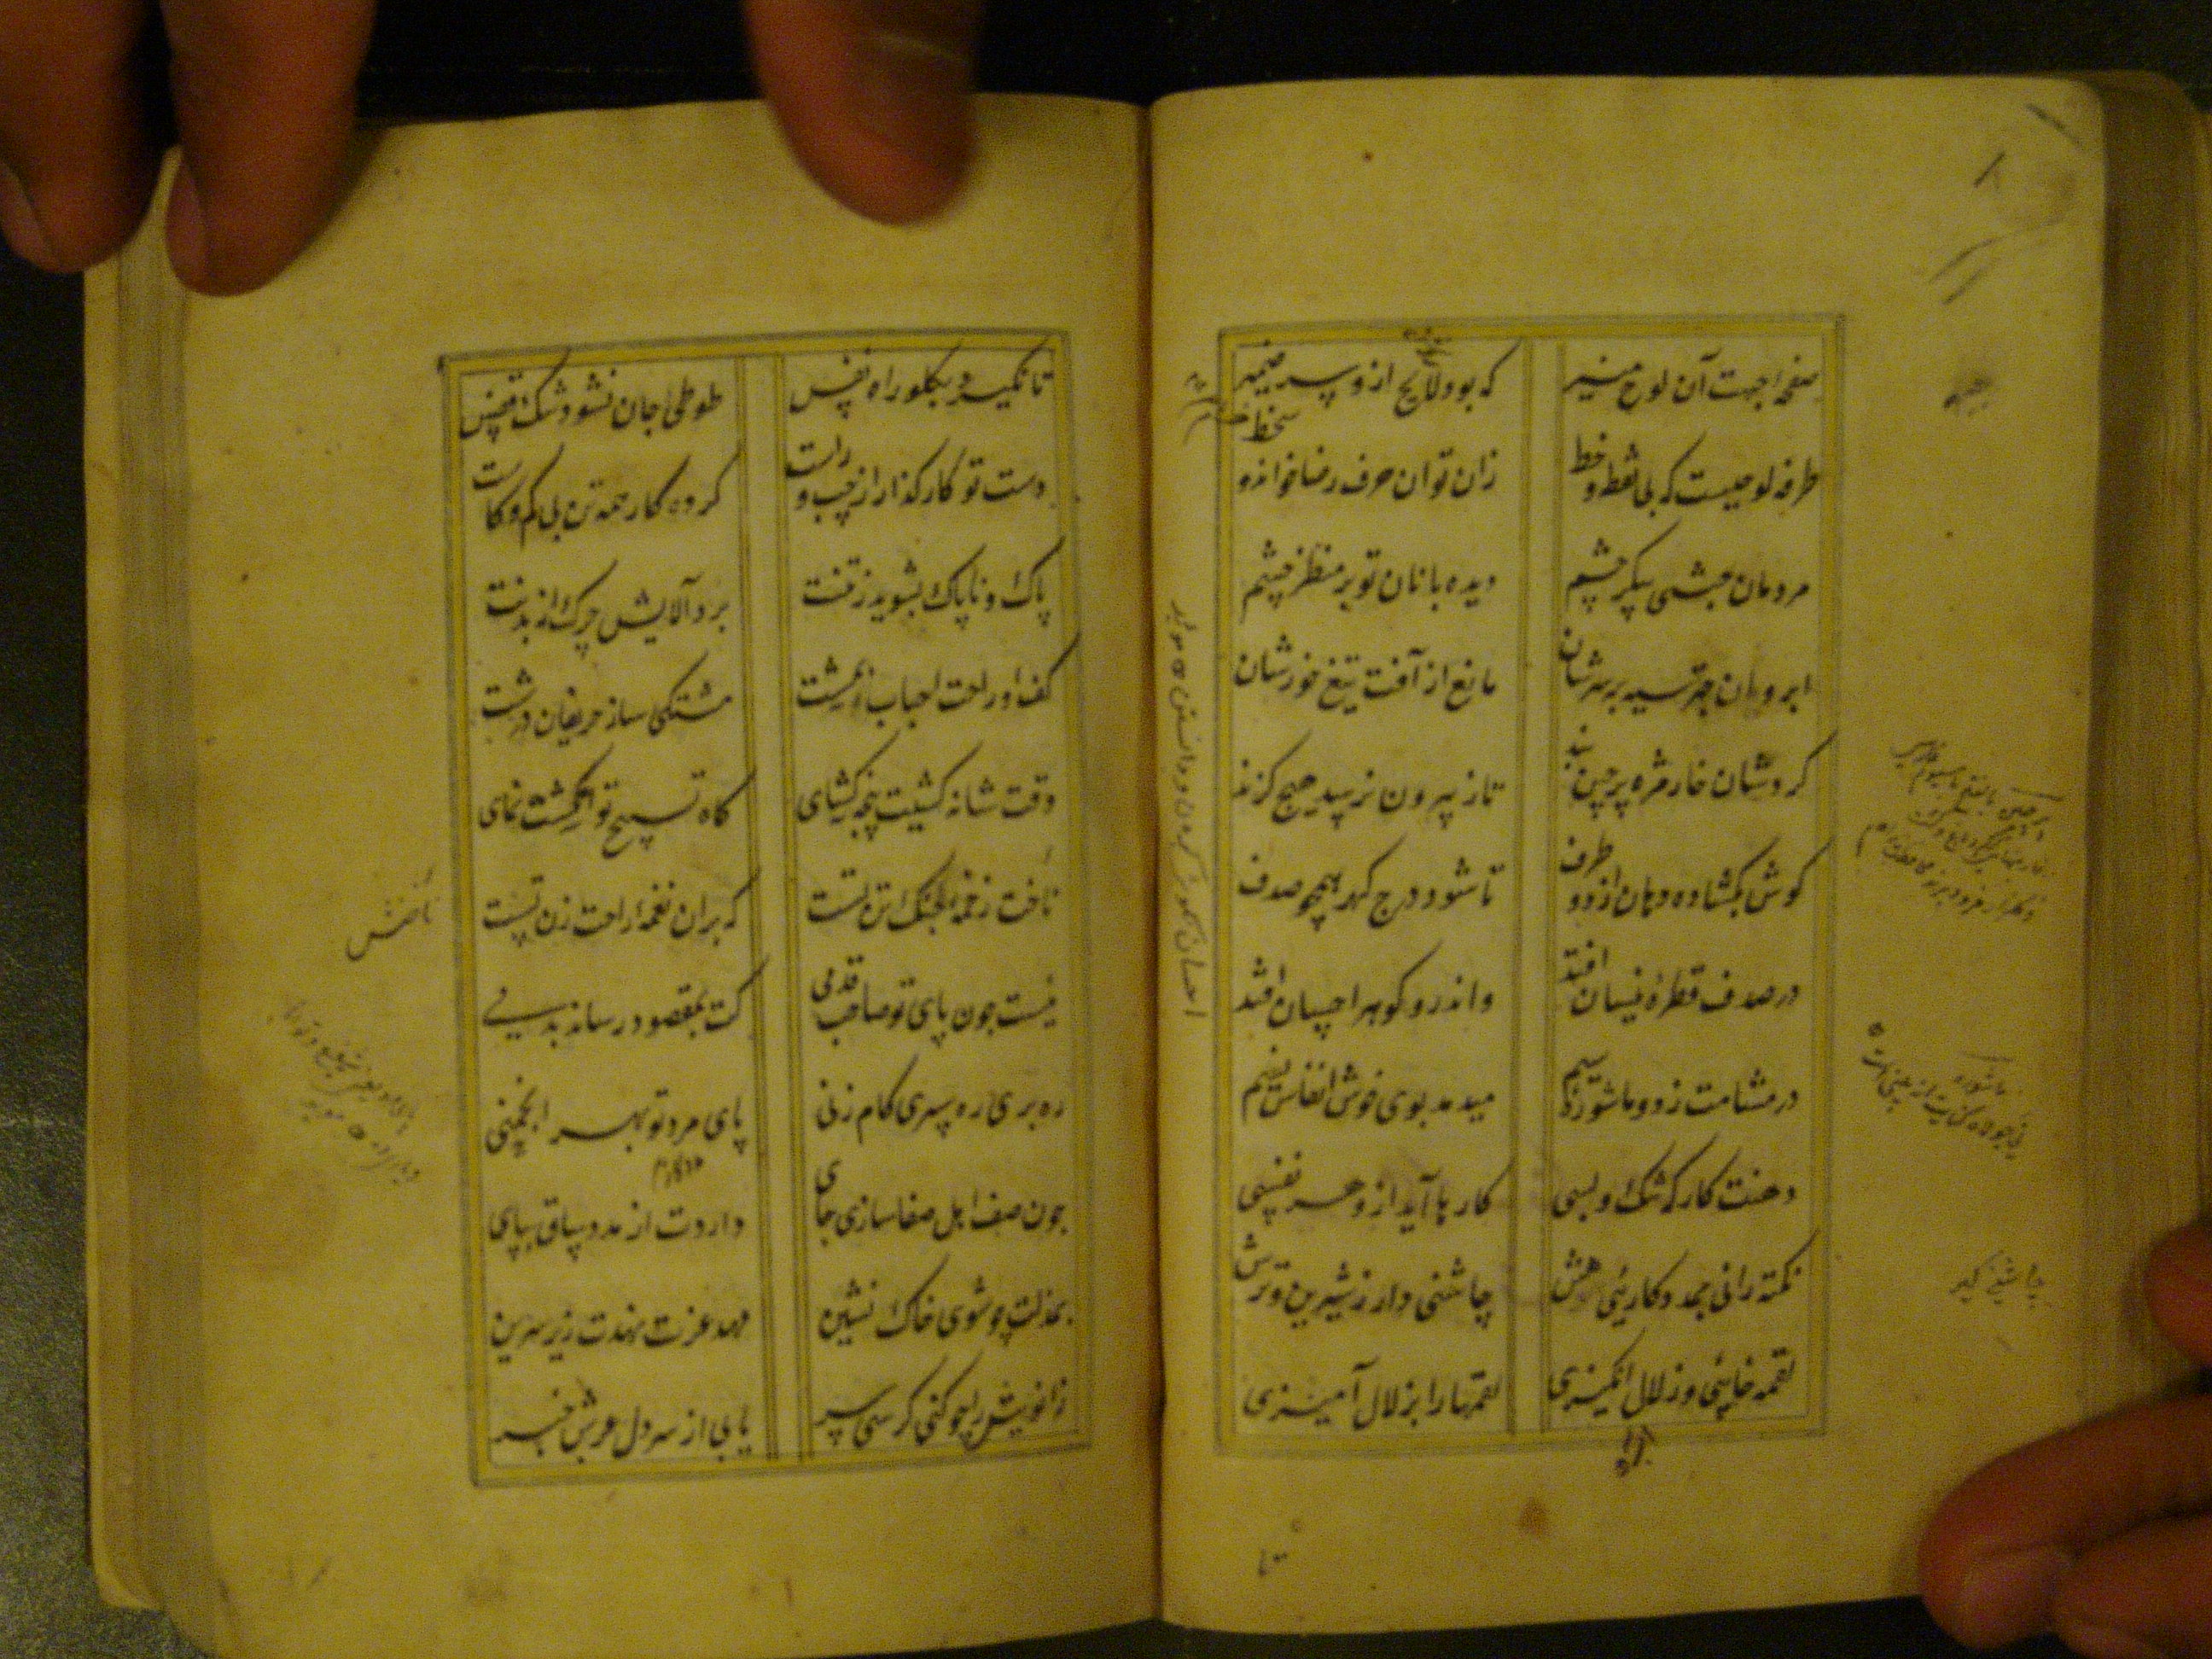 صفحهٔ جبهت آن لوح منیر
که بود لایح ازو سر ضمیر
طرفه لوحیست که بی نقط و خط
زان توان حرف رضا خواند و سخط
مردمان حبشی پیکر چشم
دیده بانان تو بر منظر چشم
ابروان چتر سیه بر سرشان
مانع از آفت تیغ خورشان
کردشان خار مژه پرچین بند
تا ز بیرون نرسد هیچ کزند
کوش بکشاده دهان از دو طرف
تا شود درج کهر همچو صدف
در صدف قطرهٔ نیسان افتد
واندرو کوهر احسان افتد
در مشامت ز دو ماشوره سیم
میدمد بوی خوش انفاس نسیم
دهنت کارکه تنک و بسی
کارها آید ازو هر نفسی
نکته رانی بمددکاری هش
چاشنی دار ز شیرین و ترش
لقمه خایی و زلال انکیزی
لقمها را بزلال آمیزی
تا
تا نکیرد بکلو راه نفس
طوطی جان نشود تنک قفس
دست تو کارکذار از چپ و راست
کرده کار همه تن بی کم و کاست
پاک و ناپاک بشوید ز تنت
برد آلایش چرک از بدنت
کف او راحت احباب ز مشت
مشتکی ساز حریفان درشت
وقت شانه کشیت پنجه کشای
کاه تسبیح تو انکشت نمای
ناخنت زخمهٔ چنک تن تست
که بران نغمهٔ راحت زن تست
نیست چون پای تو صاحب قدمی
کت بمقصود رساند بدمی
ره بری ره سپری کام زنی
پای مرد تو بهر انجمنی
چون صف اهل صفا سازی جای
داردت از مدد ساق بپای
بمذلت چو شوی خاک نشین
مهد عزت نهدت زیر سرین
زانویش را چو کنی کرسی سر
یابی از سر دل عرش خبر